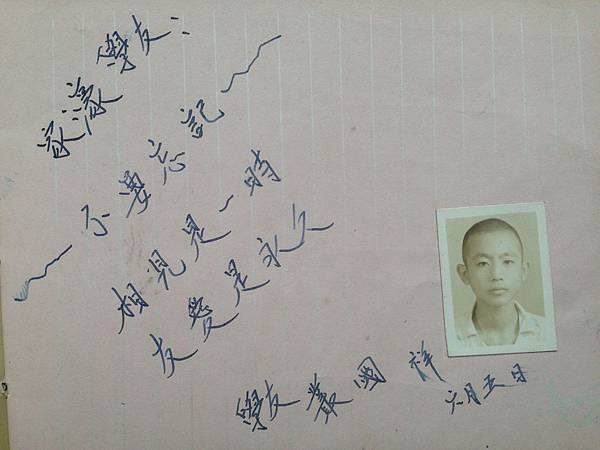 家濠學友：
不要忘記
相見是一時
友愛是永久
學友 葉國祥
六月五日